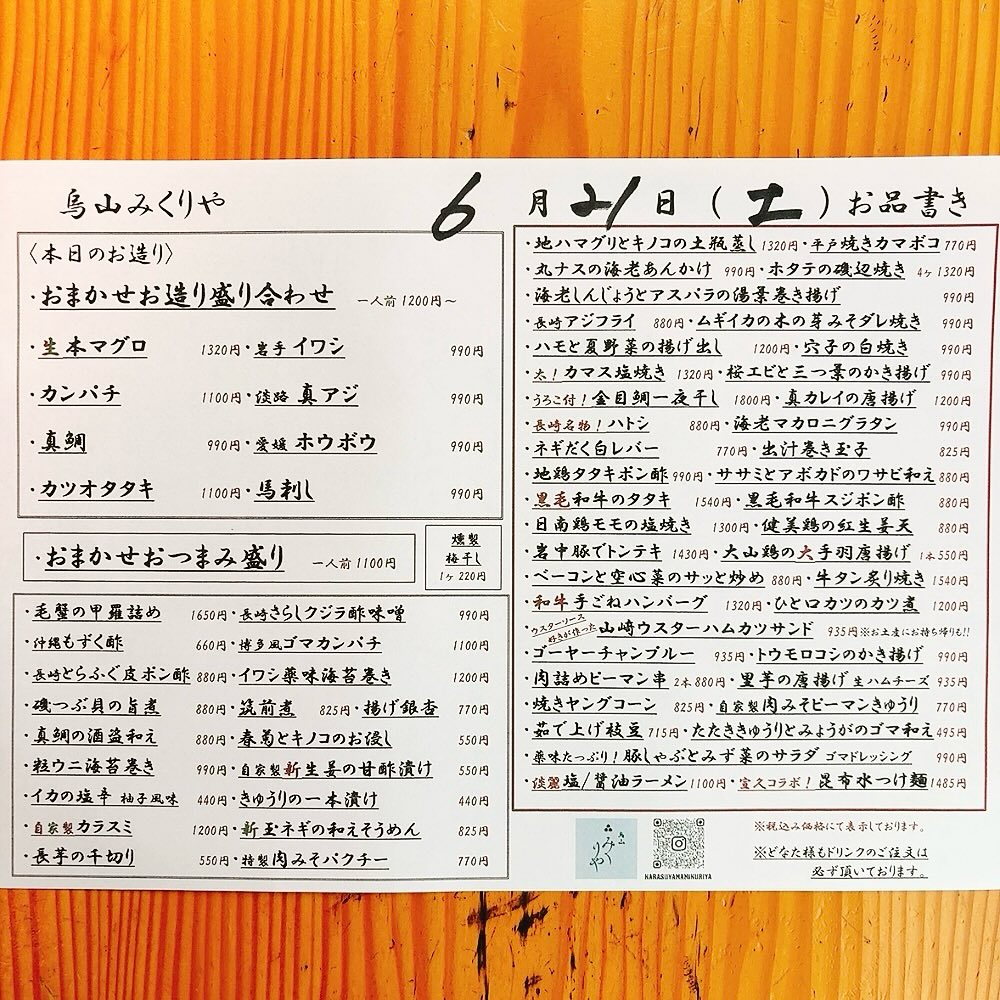 烏山みくりや
6月21日(土)お品書き
〈本日のお造り〉
・おまかせお造り盛り合わせ 一人前1200円〜
・生本マグロ 1320円・岩手イワシ 990円
・カンパチ 1100円・淡路 真アジ 990円
・真鯛 990円・愛媛 ホウボウ 990円
・カツオタタキ 1100円・馬刺し 990円
・おまかせおつまみ盛り 一人前1100円
燻製
梅干し
1ヶ220円
・毛蟹の甲羅詰め 1650円・長崎さらしクジラ酢味噌 990円
・沖縄もずく酢 660円・博多風ゴマカンパチ 1100円
・長崎とらふぐ皮ポン酢 880円・イワシ薬味海苔巻き 1200円
・磯つぶ貝の旨煮 880円・筑前煮 825円・揚げ銀杏 770円
・真鯛の酒盗和え 880円・春菊とキノコのお浸し 550円
・粒ウニ海苔巻き 990円・自家製新生姜の甘酢漬け 550円
・イカの塩辛 柚子風味 440円・きゅうりの一本漬け 440円
・自家製カラスミ 1200円・新玉ネギの和えそうめん 825円
・長芋の千切り 550円・特製肉みそパクチー 770円
・地ハマグリとキノコの土瓶蒸し 1320円・平戸焼きカマボコ 770円
・丸ナスの海老あんかけ 990円・ホタテの磯辺焼き 4ヶ1320円
・海老しんじょうとアスパラの湯葉巻き揚げ 990円
・長崎アジフライ 880円・ムギイカの木の芽みそダレ焼き 990円
・ハモと夏野菜の揚げ出し 1200円・穴子の白焼き 990円
・太!カマス塩焼き 1320円・桜エビと三つ葉のかき揚げ 990円
・うろこ付!金目鯛一夜干し 1800円・真カレイの唐揚げ 1200円
・長崎名物!ハトシ 880円・海老マカロニグラタン 990円
・ネギだく白レバー 770円・出汁巻き玉子 825円
・地鶏タタキポン酢 990円・ササミとアボカドのワサビ和え 880円
・黒毛和牛のタタキ 1540円・黒毛和牛スジポン酢 880円
・日南鶏モモの塩焼き 1300円・健美鶏の紅生姜天 880円
・岩中豚でトンテキ 1430円・大山鶏の大手羽唐揚げ 1本550円
・ベーコンと空心菜のサッと炒め 880円・牛タン炙り焼き 1540円
・和牛手ごねハンバーグ 1320円・ひと口カツのカツ煮 1200円
・ウスターソース好きが作った 山崎ウスターハムカツサンド 935円※お土産にお持ち帰りも!!
・ゴーヤーチャンプルー 935円・トウモロコシのかき揚げ 990円
・肉詰めピーマン串 2本880円・里芋の唐揚げ 生ハムチーズ 935円
・焼きヤングコーン 825円・自家製肉みそピーマンきゅうり 770円
・茹で上げ枝豆 715円・たたききゅうりとみょうがのゴマ和え 495円
・薬味たっぷり!豚しゃぶとみず菜のサラダ ゴマドレッシング 990円
・淡麗塩/醤油ラーメン 1100円・宣久コラボ!昆布水つけ麺 1485円
みくりや
KARASUYAMAMIKURIYA
※税込み価格にて表示しております。
※どなた様もドリンクのご注文は
必ず頂いております。